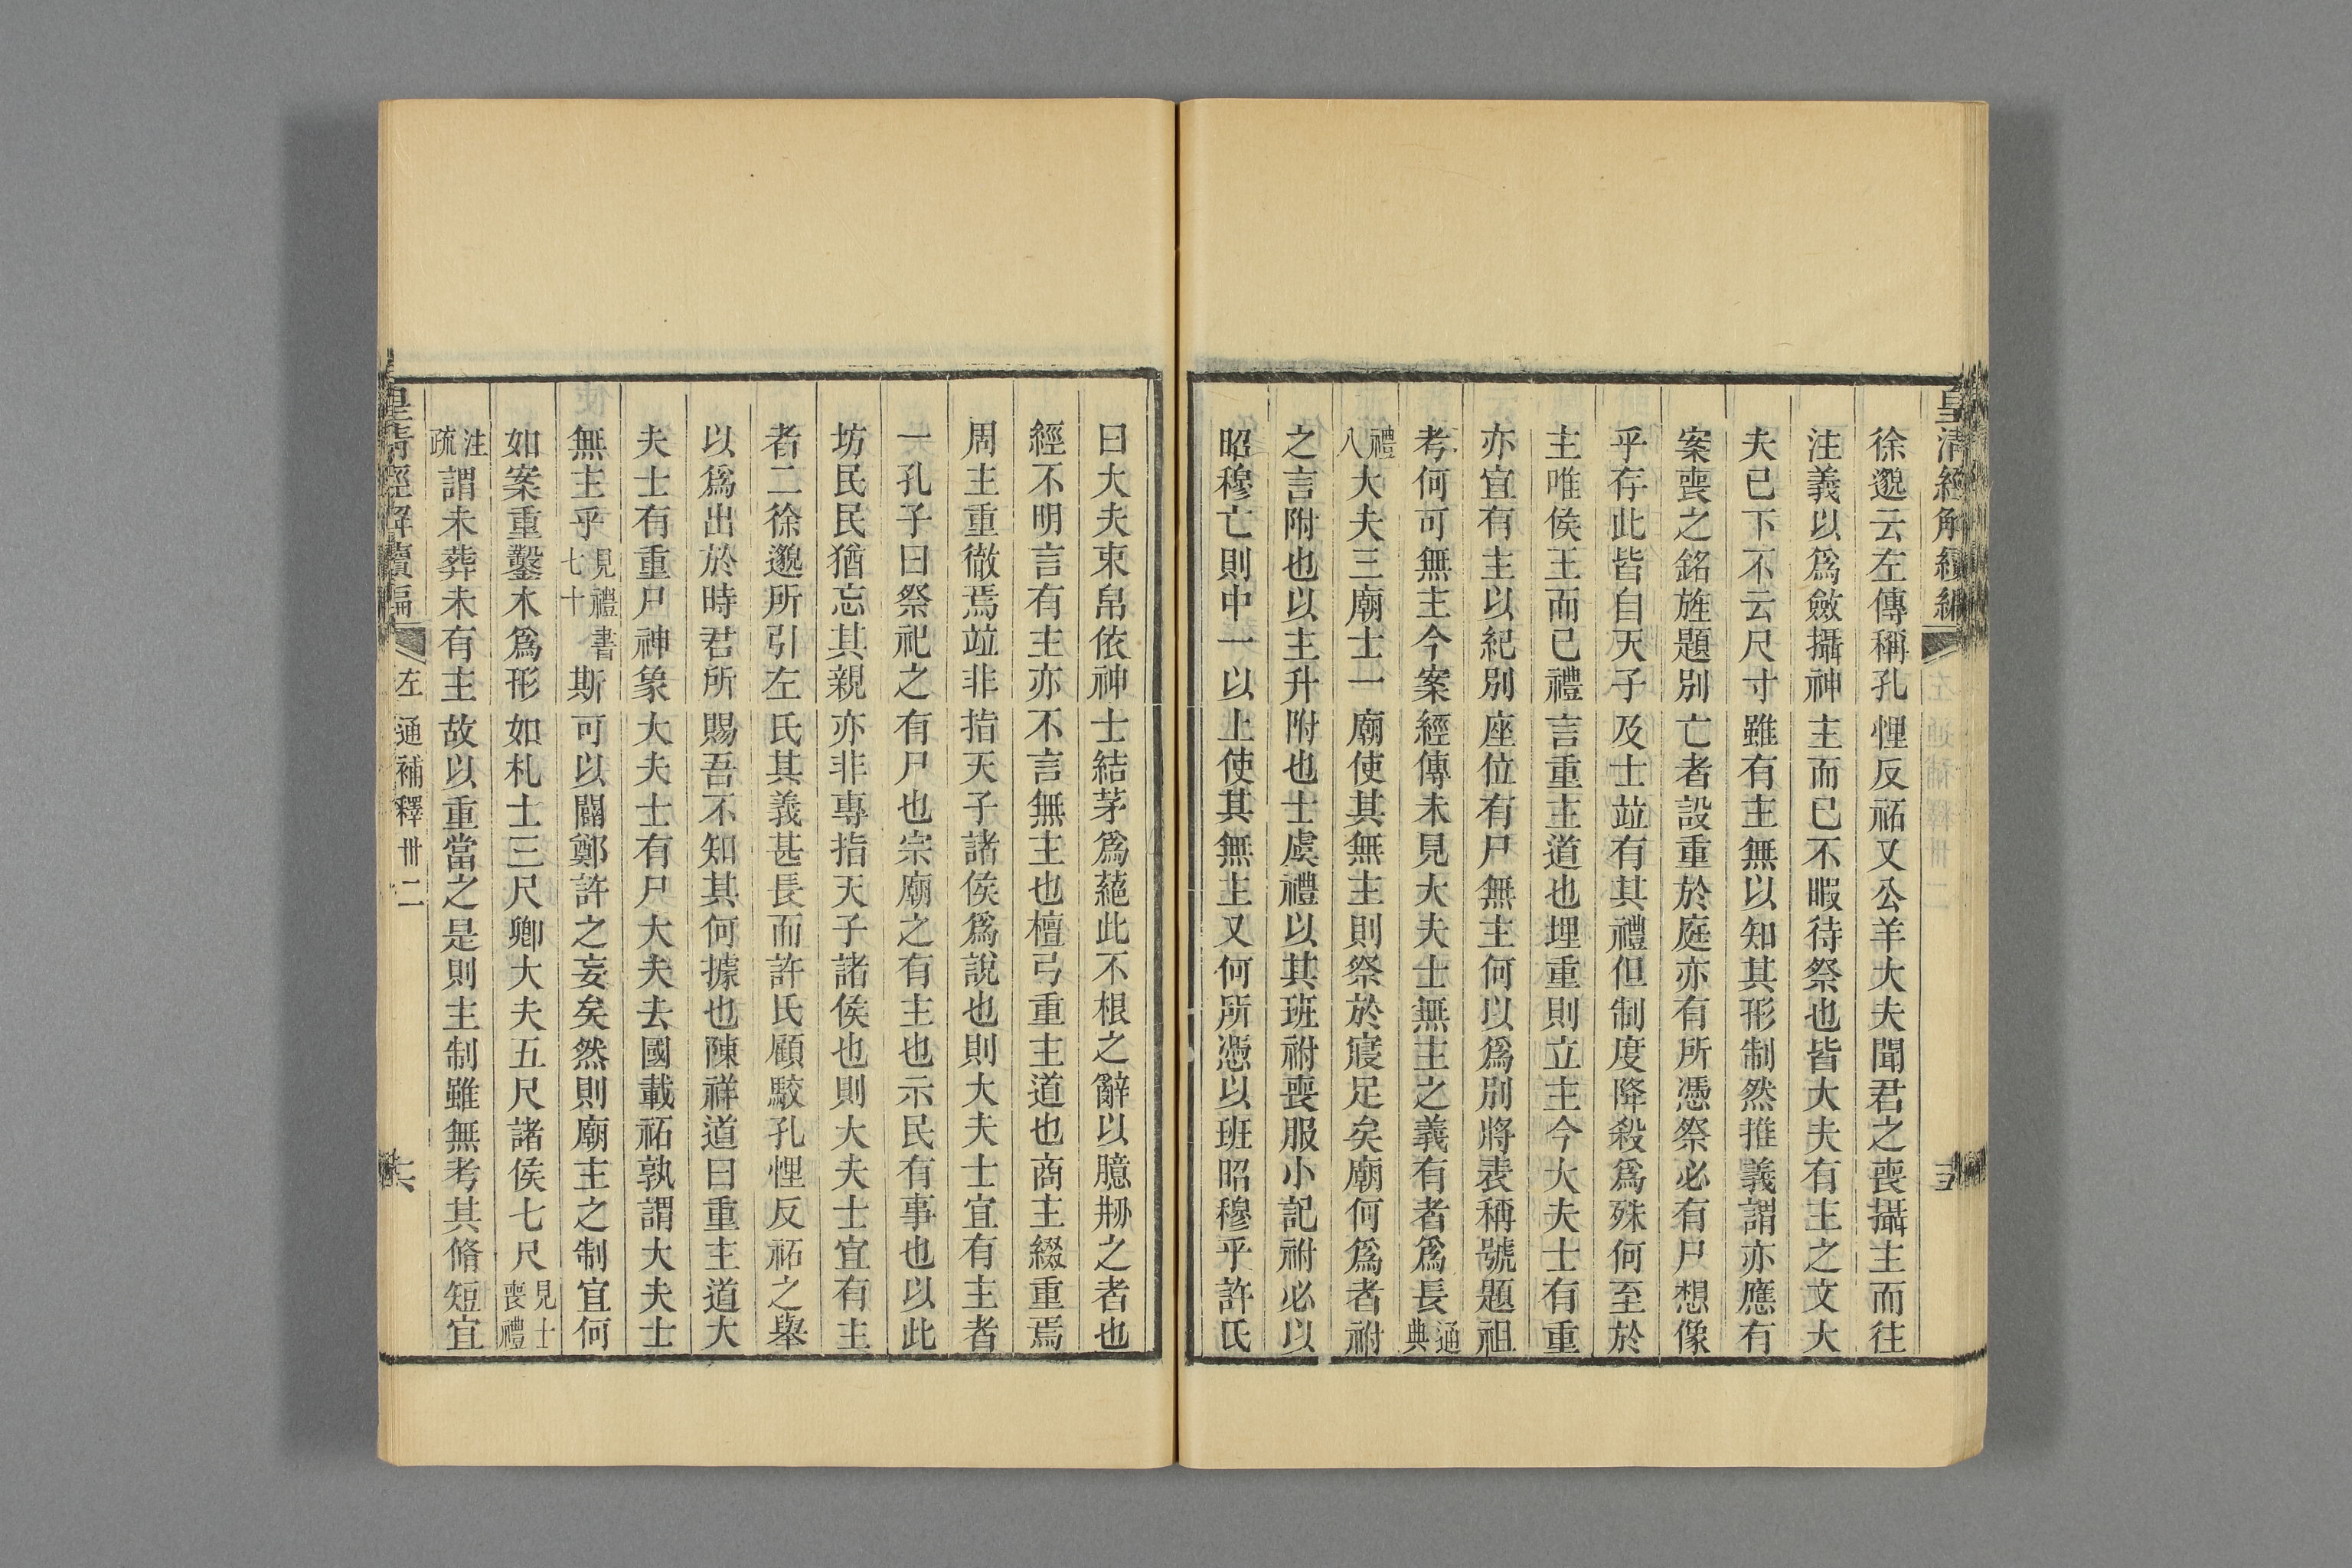 皇清經解續編
徐邈云左傳稱孔悝反祏又公羊大夫聞君之喪攝主而往
注義以爲斂攝神主而已不暇待祭也皆大夫有主之文大
夫已下不云尺寸雖有主無以知其形制然推義謂亦應有
案喪之銘旌題別亡者設重於庭亦有所憑祭必有尸想像
乎存此皆自天子及士竝有其禮但制度降殺爲殊何至於
主唯侯王而已禮言重主道也埋重則立主今大夫士有重
亦宜有主以紀別座位有尸無主何以爲別將表稱號題祖
考何可無主今案經傳未見大夫士無主之義有者爲長通典
禮八大夫三廟士一廟使其無主則祭於寢足矣廟何爲者祔
之言附也以主升附也士虞禮以其班祔喪服小記祔必以
昭穆亡則中一以上使其無主又何所憑以班昭穆乎許氏
曰大夫束帛依神士結茅爲蕝此不根之辭以臆剙之者也
經不明言有主亦不言無主也檀弓重主道也商主綴重焉
周主重徹焉竝非指天子諸侯爲說也則大夫士宜有主者
一孔子曰祭祀之有尸也宗廟之有主也示民有事也以此
坊民民猶忘其親亦非專指天子諸侯也則大夫士宜有主
者二徐邈所引左氏其義甚長而許氏顧駮孔悝反祏之舉
以爲出於時君所賜吾不知其何據也陳祥道曰重主道大
夫士有重尸神象大夫士有尸大夫去國載祏孰謂大夫士
無主乎見禮書七十斯可以闢鄭許之妄矣然則廟主之制宜何
如案重鑿木爲形如札士三尺卿大夫五尺諸侯七尺見士喪禮
注疏謂未葬未有主故以重當之是則主制雖無考其脩短宜
皇清經解續編 左通補釋卅二 六